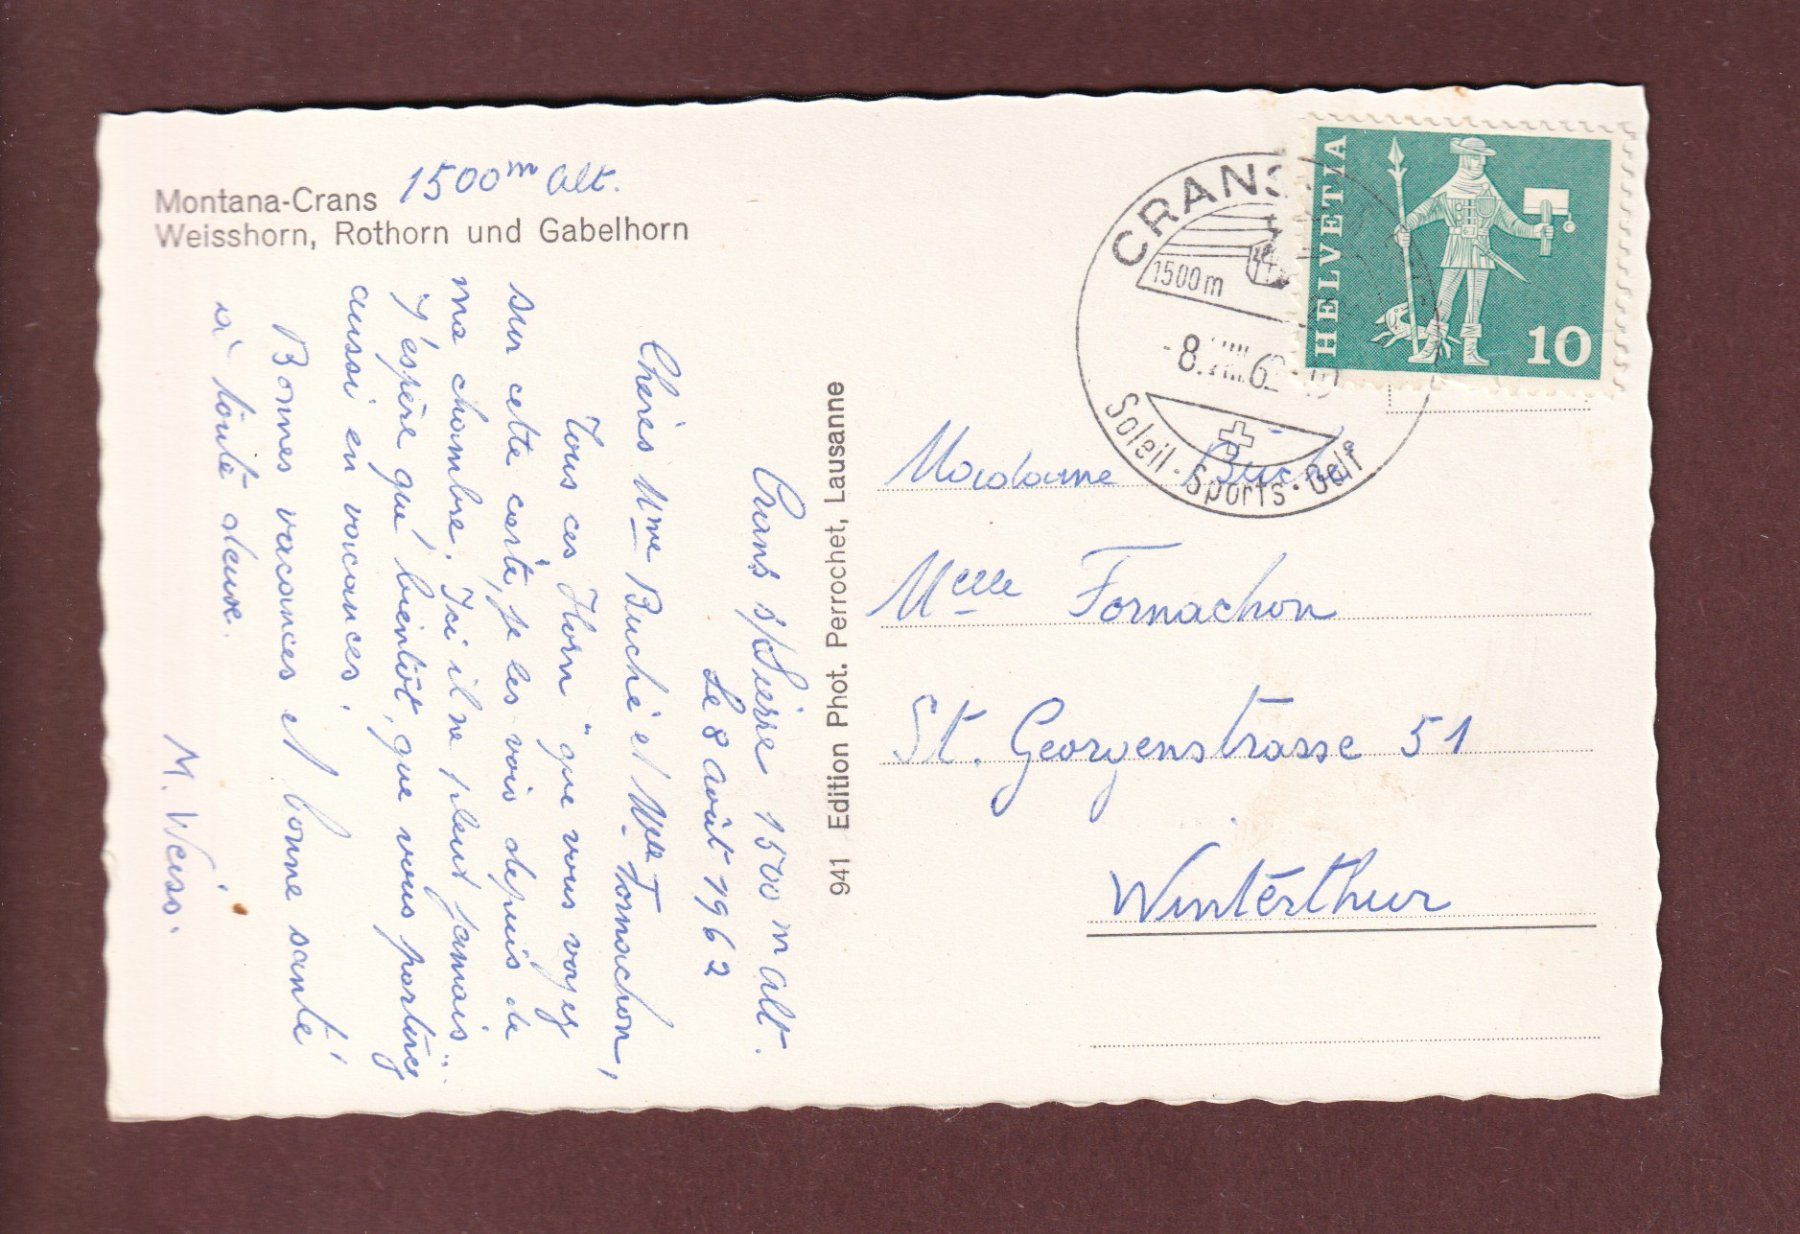 Montana-Crans 1500m alt.
Weisshorn, Rothorn und Gabelhorn
Crans s/Sierre 1500 m alt.
Le 8 août 1962
Chères Mme Buche et Mlle Fornachon,
Tous ces "Horn" que vous voyez
sur cette carte, je les vois depuis de
ma chambre. Ici il ne pleut jamais..
J'espère que bientôt, que vous partirez
aussi en vacances.
Bonnes vacances et bonne santé
à toute deux.
M. Weiss.
941 Edition Phot. Perrochet, Lausanne
CRANS
1500 m
-8.VIII.62
Soleil·Sports·Golf
HELVETIA
10
Madame Buche
Melle Fornachon
St. Georgenstrasse 51
Winterthur